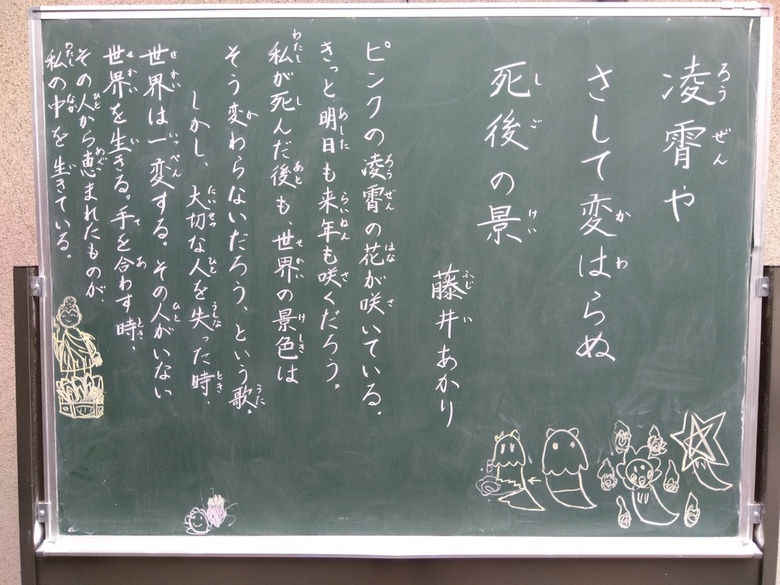 凌霄や
さして変はらぬ
死後の景
藤井あかり
ピンクの凌霄の花が咲いている。
きっと明日も来年も咲くだろう。
私が死んだ後も、世界の景色は
そう変わらないだろう、という歌。
しかし、大切な人を失った時、
世界は一変する。その人がいない
世界を生きる。手を合わす時、
その人から恵まれたものが、
私の中を生きている。